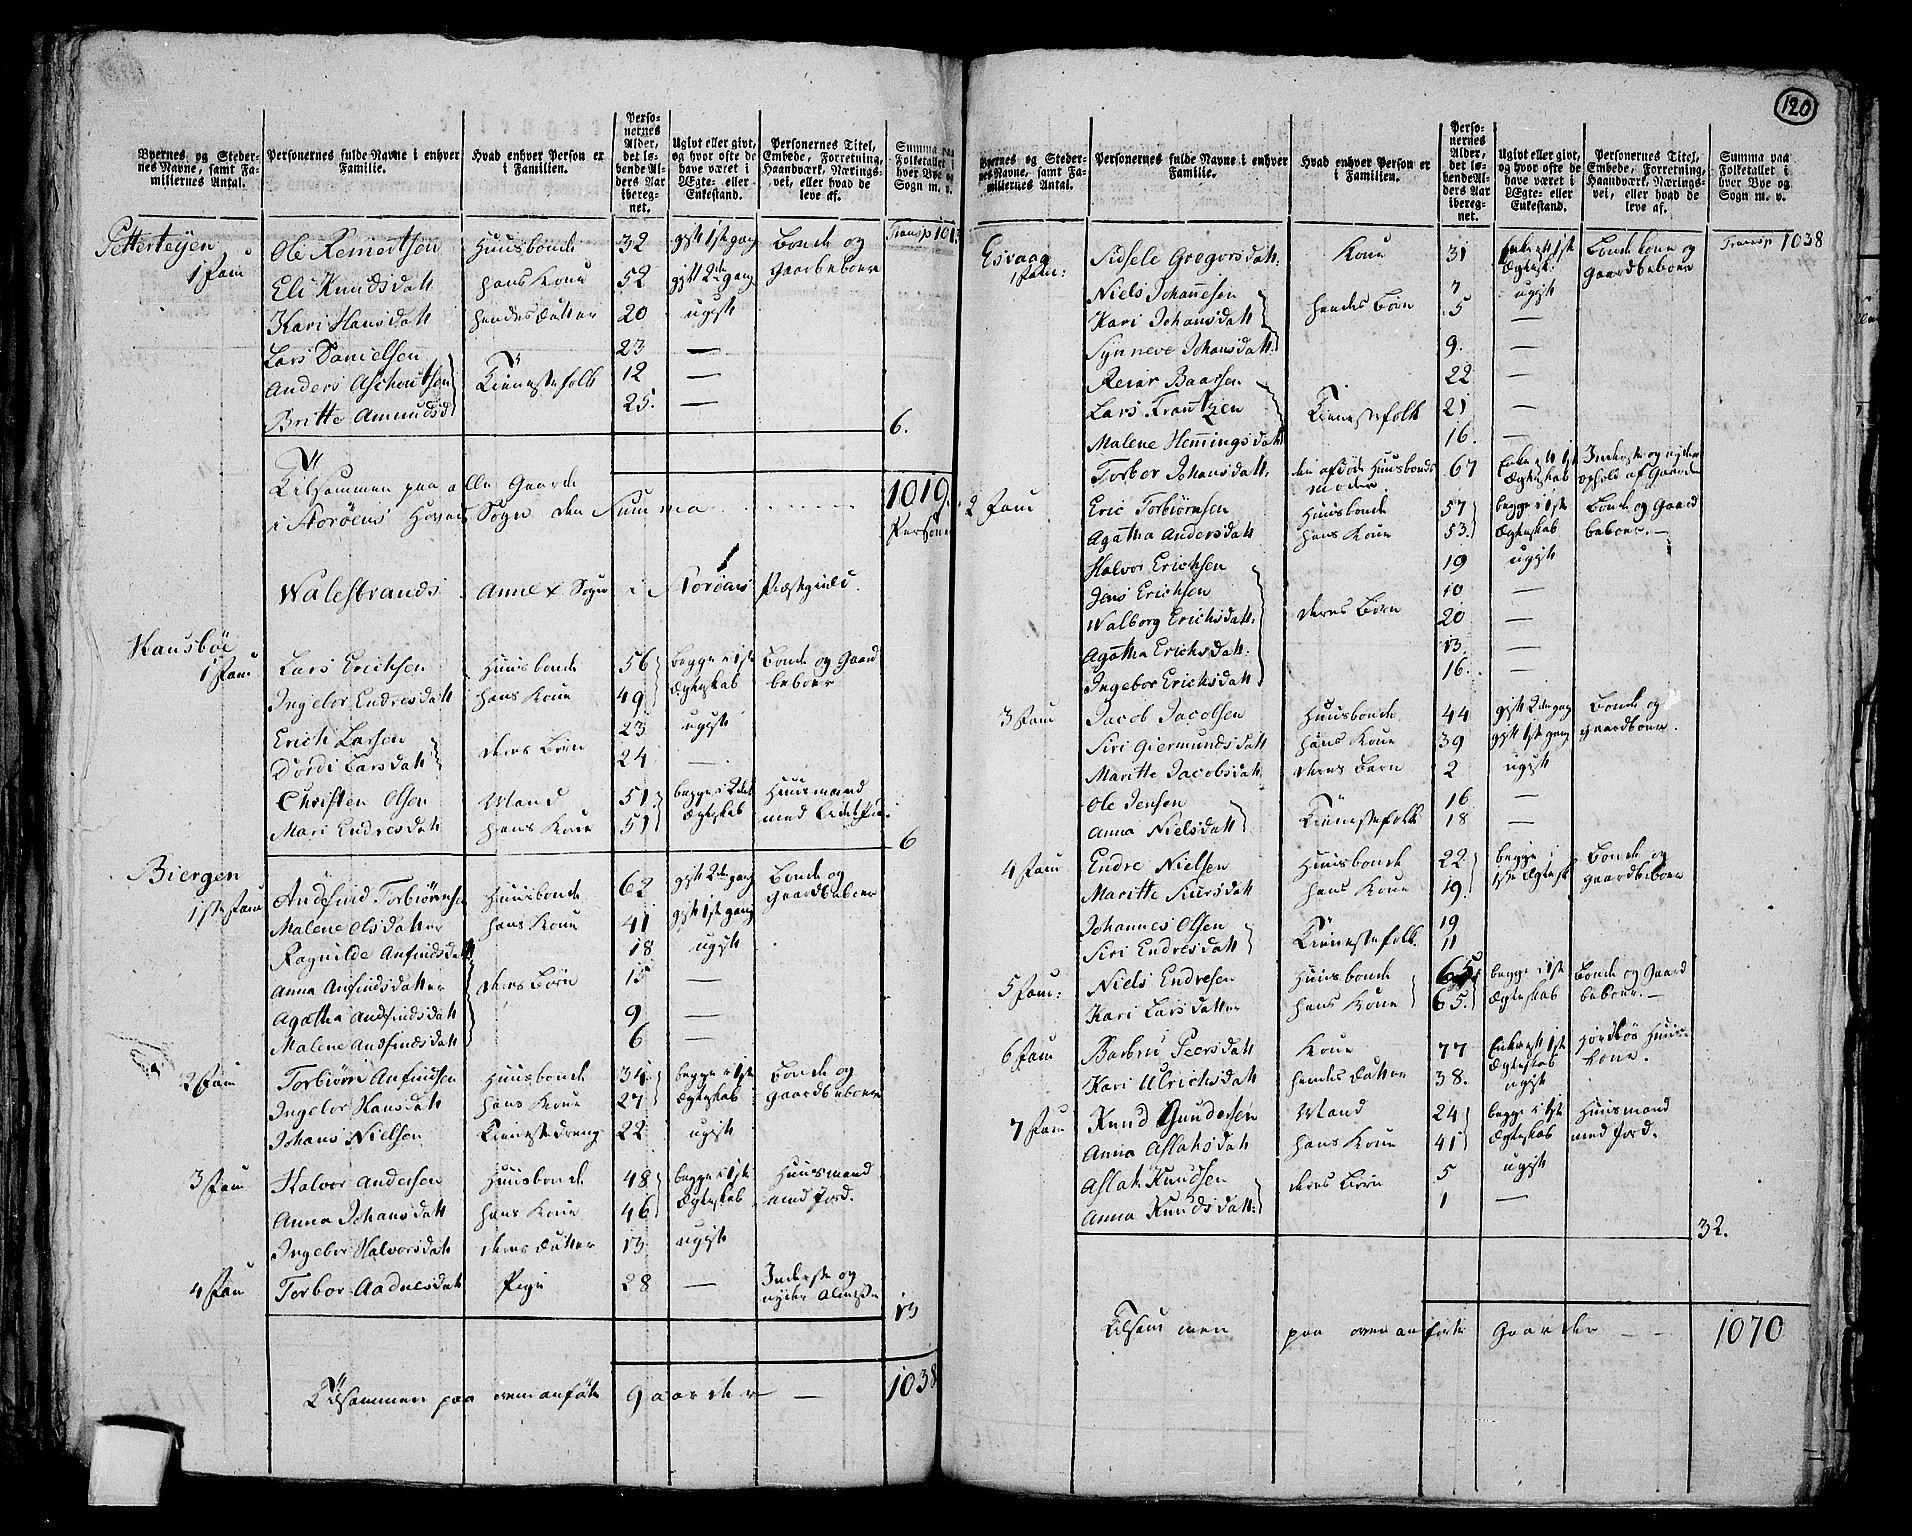 120
Byernes og Steder-
nes Navne, samt Fa-
miliernes Antal.
Personernes fulde Navne i enhver
Familie.
Hvad enhver Person er
i Familien.
Perso-
nernes
Alder,
det lø-
bende Al-
ders Aar
iberegnet.
Ugivt eller givt,
og hvor ofte de
have været i
Ægte- eller
Enkestand.
Personernes Titel,
Embede, Forretning,
Haandværk, Nærings-
vei, eller hvad de
leve af.
Summa paa
Folketallet i
hver Bye og
Sogn m. v.
Transp 101
Ole Reinertsen Huusbonde 32 gift 1ste gang Bonde og
1 Fam Eli Knudsdatt hans Kone 52 gift 2den gang Gaardbeboer
Kari Hansdatt hendes Datter 20 ugift
Lars Danielsen 23 —
Anders Aschoutsen Tienestefolk 12 —
Britte Amundsd 25. —
6.
Tilsammen paa alle Gaarde
i Storøens Hoved Sogn den Summa 1019.
Personer
Walestrands Annex Sogn i Storøens Præstegield.
1 Fam Lars Erichsen Huusbonde 56 begge i 1ste Bonde og Gaard
Ingebor Endresdatt hans Kone 49 Ægteskab beboer
Erich Larsen 23 ugift
Dordi Larsdatt deres Børn 24 —
Christen Olsen Mand 51 begge i 2det Huusmand
Mari Endresdatt hans Kone 51 Ægteskab med
6
Biergen
1ste Fam Andfind Torbiørnsen Huusbonde 62 gift 2den gang Bonde og
Malene Olsdatter hans Kone 41 gift 1ste gang Gaardbeboer
Ragnilde Anfindsdatt 18 ugift
Anna Anfindsdatter deres Børn 15 —
Agatha Andfindsdatt 9 —
Malene Andfindsdatt 6 —
2 Fam Torbiørn Anfindsen Huusbonde 34 begge i 1ste Bonde og
Ingebor Hansdatt hans Kone 27 Ægteskab Gaardbeboer
Johans Nielsen Tienestedreng 22 ugift
3 Fam Halvor Andersen Huusbonde 48 begge i 1ste Huusmand
Anna Johansdatt hans Kone 46 Ægteskab med Jord.
Ingebor Halvorsdatt deres Datter 13 ugift
4 Fam Torbor Aadnesdatt Pige 28 — Inderste og
nyder Almisse
13
Tilsammen paa ovenanførte Gaarder — 1038
Byernes og Steder-
nes Navne, samt Fa-
miliernes Antal.
Personernes fulde Navne i enhver
Familie.
Hvad enhver Person er
i Familien.
Perso-
nernes
Alder,
det lø-
bende Al-
ders Aar
iberegnet.
Ugivt eller givt,
og hvor ofte de
have været i
Ægte- eller
Enkestand.
Personernes Titel,
Embede, Forretning,
Haandværk, Nærings-
vei, eller hvad de
leve af.
Summa paa
Folketallet i
hver Bye og
Sogn m. v.
Transp 1038
Esvaag Sidsele Gregorsdatt. Kone 31 Enke efter 1ste Bondekone og
1 Fam: Ægtesk: Gaardbeboer
Niels Johannesen 7 ugift
Kari Johansdatt hendes Børn 5 —
Synneve Johansdatt. 9. —
Reier Baarsen 22 —
Lars Frantzen Tienestefolk 21 —
Malene Hemmingsdatt 16. —
Torbor Johansdatt. den afdøde Huusbonds 67 Enke efter 1ste Inderste og nyder
moder Ægteskab ophold af Gaarden
2 Fam Eric Torbiørnsen Huusbonde 57 begge i 1ste Bonde og Gaard
Agatha Andersdatt hans Kone 53. Ægteskab beboer. —
Halvor Erichsen 19 ugift
Jens Erichsen 10 —
Walborg Erichsdatt. deres Børn 20 —
Agatha Erichsdatt: 13 —
Ingebor Erichsdatt 16. —
3 Fam Jacob Jacobsen Huusbonde 44 gift 2den gang Bonde og
Siri Giermundsdatt hans Kone 39 gift 1ste gang Gaardboer.
Maritte Jacobsdatt deres Barn 2 ugift
Ole Jensen 16 —
Anna Nielsdatt Tienestefolk 18 —
4 Fam Endre Nielsen Huusbonde 22 begge i Bonde og
Maritte Siursdatt hans Kone 19. 1ste Ægtesk Gaardbeboer
Johannes Olsen 19
Siri Endresdatt Tienestefolk. 11
5 Fam: Niels Endresen Huusbonde 65 begge i 1ste Bonde og Gaard
Kari Larsdatter hans Kone 65. Ægteskab beboer. —
6 Fam Barbru Peersdatt Kone 77 Enke efter 1ste Jordløs Huus-
Ægteskab kone.
Kari Ulrichsdatt hendes Datter 38. ugift
7 Fam Knud Gundersen Mand 24 begge i 1ste Huusmand
Anna Aslaksdatt hans Kone 41 Ægteskab med Jord.
Aslak Knudsen deres Børn 5 ugift
Anna Knudsdatt: 1 —
32.
Tilsammen paa ovenanførte Gaarder — — 1070